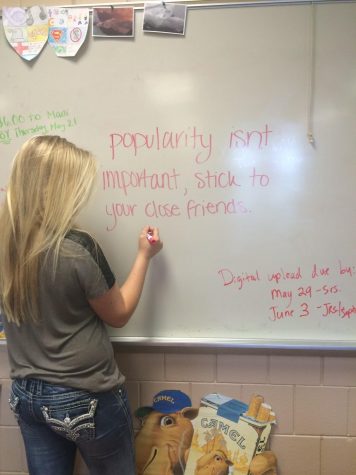 Thursday May 21
popularity isnt
important, stick to
your close friends.
Digital upload due by:
May 29 - Srs.
June 3 - Jrs/Soph
CAMEL
CAMEL